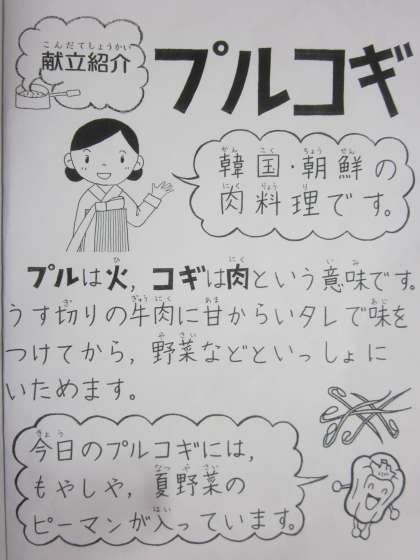 こんだてしょうかい
献立紹介
プルコギ
かん こく ちょう せん
韓国・朝鮮の
にく りょう り
肉料理です。
ひ にく い み
プルは火，コギは肉という意味です。
ぎ ぎゅう にく あま あじ
うす切りの牛肉に甘からいタレで味を
や さい
つけてから，野菜などといっしょに
いためます。
きょう
今日のプルコギには，
なつ や さい
もやしや，夏野菜の
はい
ピーマンが入っています。